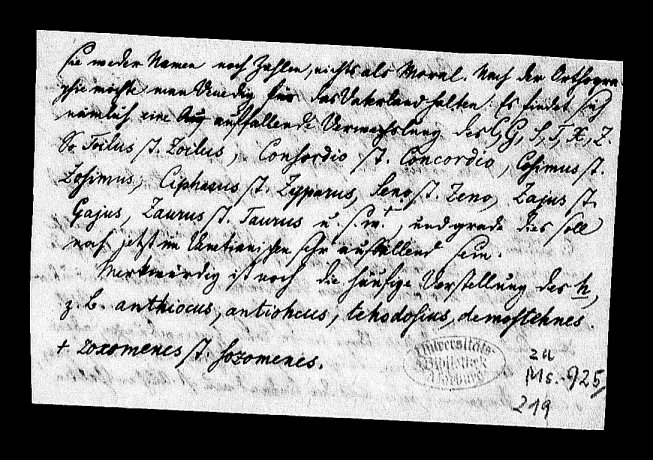 sie weder Namen noch Zahlen, nichts als Moral. Nach der Orthogra-
phie möchte man Venedig für das Vaterland halten. Es findet sich
nämlich eine auffallende Verwechslung des C, G, S, T, X, Z.
So Toilus st. Zoilus, Consordio st. Concordio, Cosimus st.
Zosimus, Cipharus st. Zyparus, Seno st. Zeno, Zajus st.
Gajus, Zaurus st. Taurus u. s. w.+, und grade dies soll
noch jetzt im Venetianischen sehr auffallend sein.
Merkwürdig ist noch die häufige Verstellung des h,
z. B. anthiocus, antiohcus, tehodosius, demostehnes.
+ zoxomenes st. sozomenes.
Universitäts-
Bibliothek
Marburg
zu
Ms. 725/
219